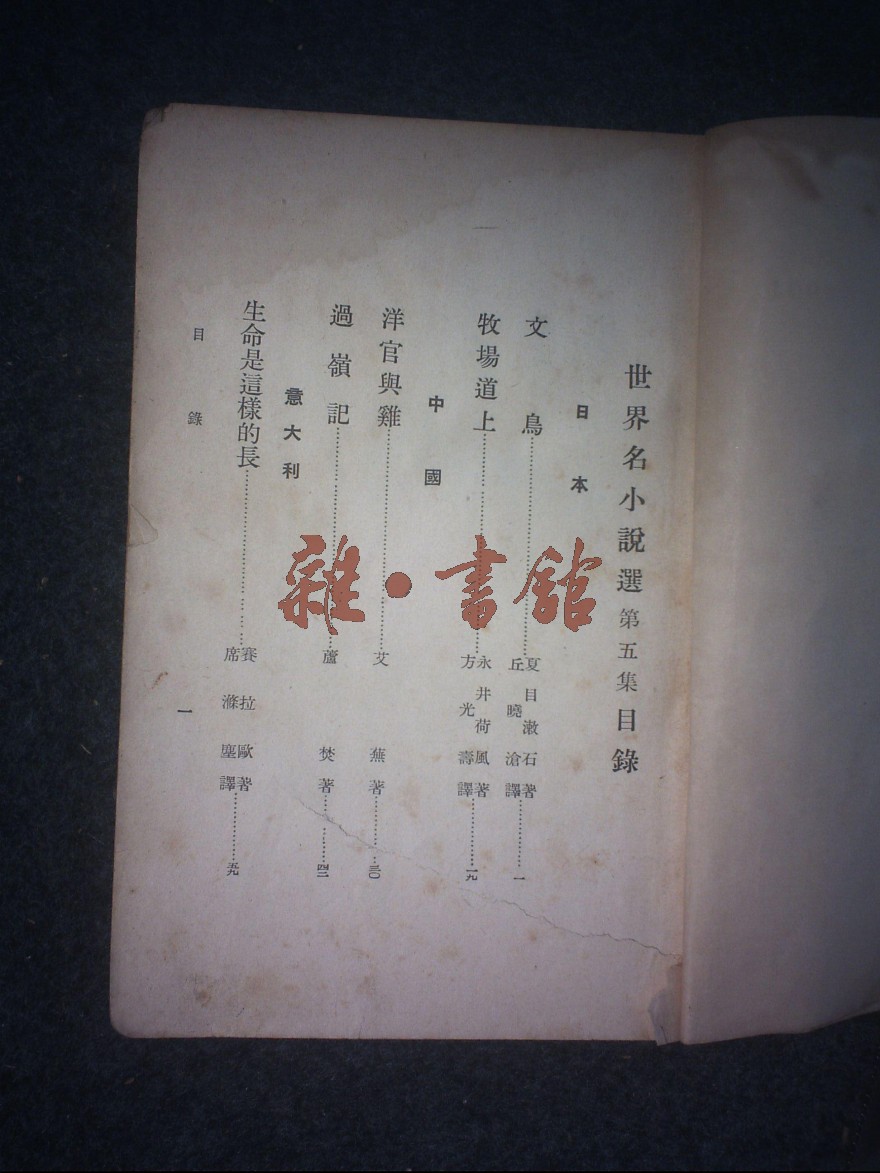 世界名小說選第五集目錄
日本
文鳥……夏目漱石著 丘曉滄譯……一
牧場道上……永井荷風著 方光壽譯……一九
中國
洋官與雞……艾蕪著……三〇
過嶺記……蘆焚著……四二
意大利
生命是這樣的長……賽拉歐著 席滌塵譯……五九
目錄
一
雜·書舘